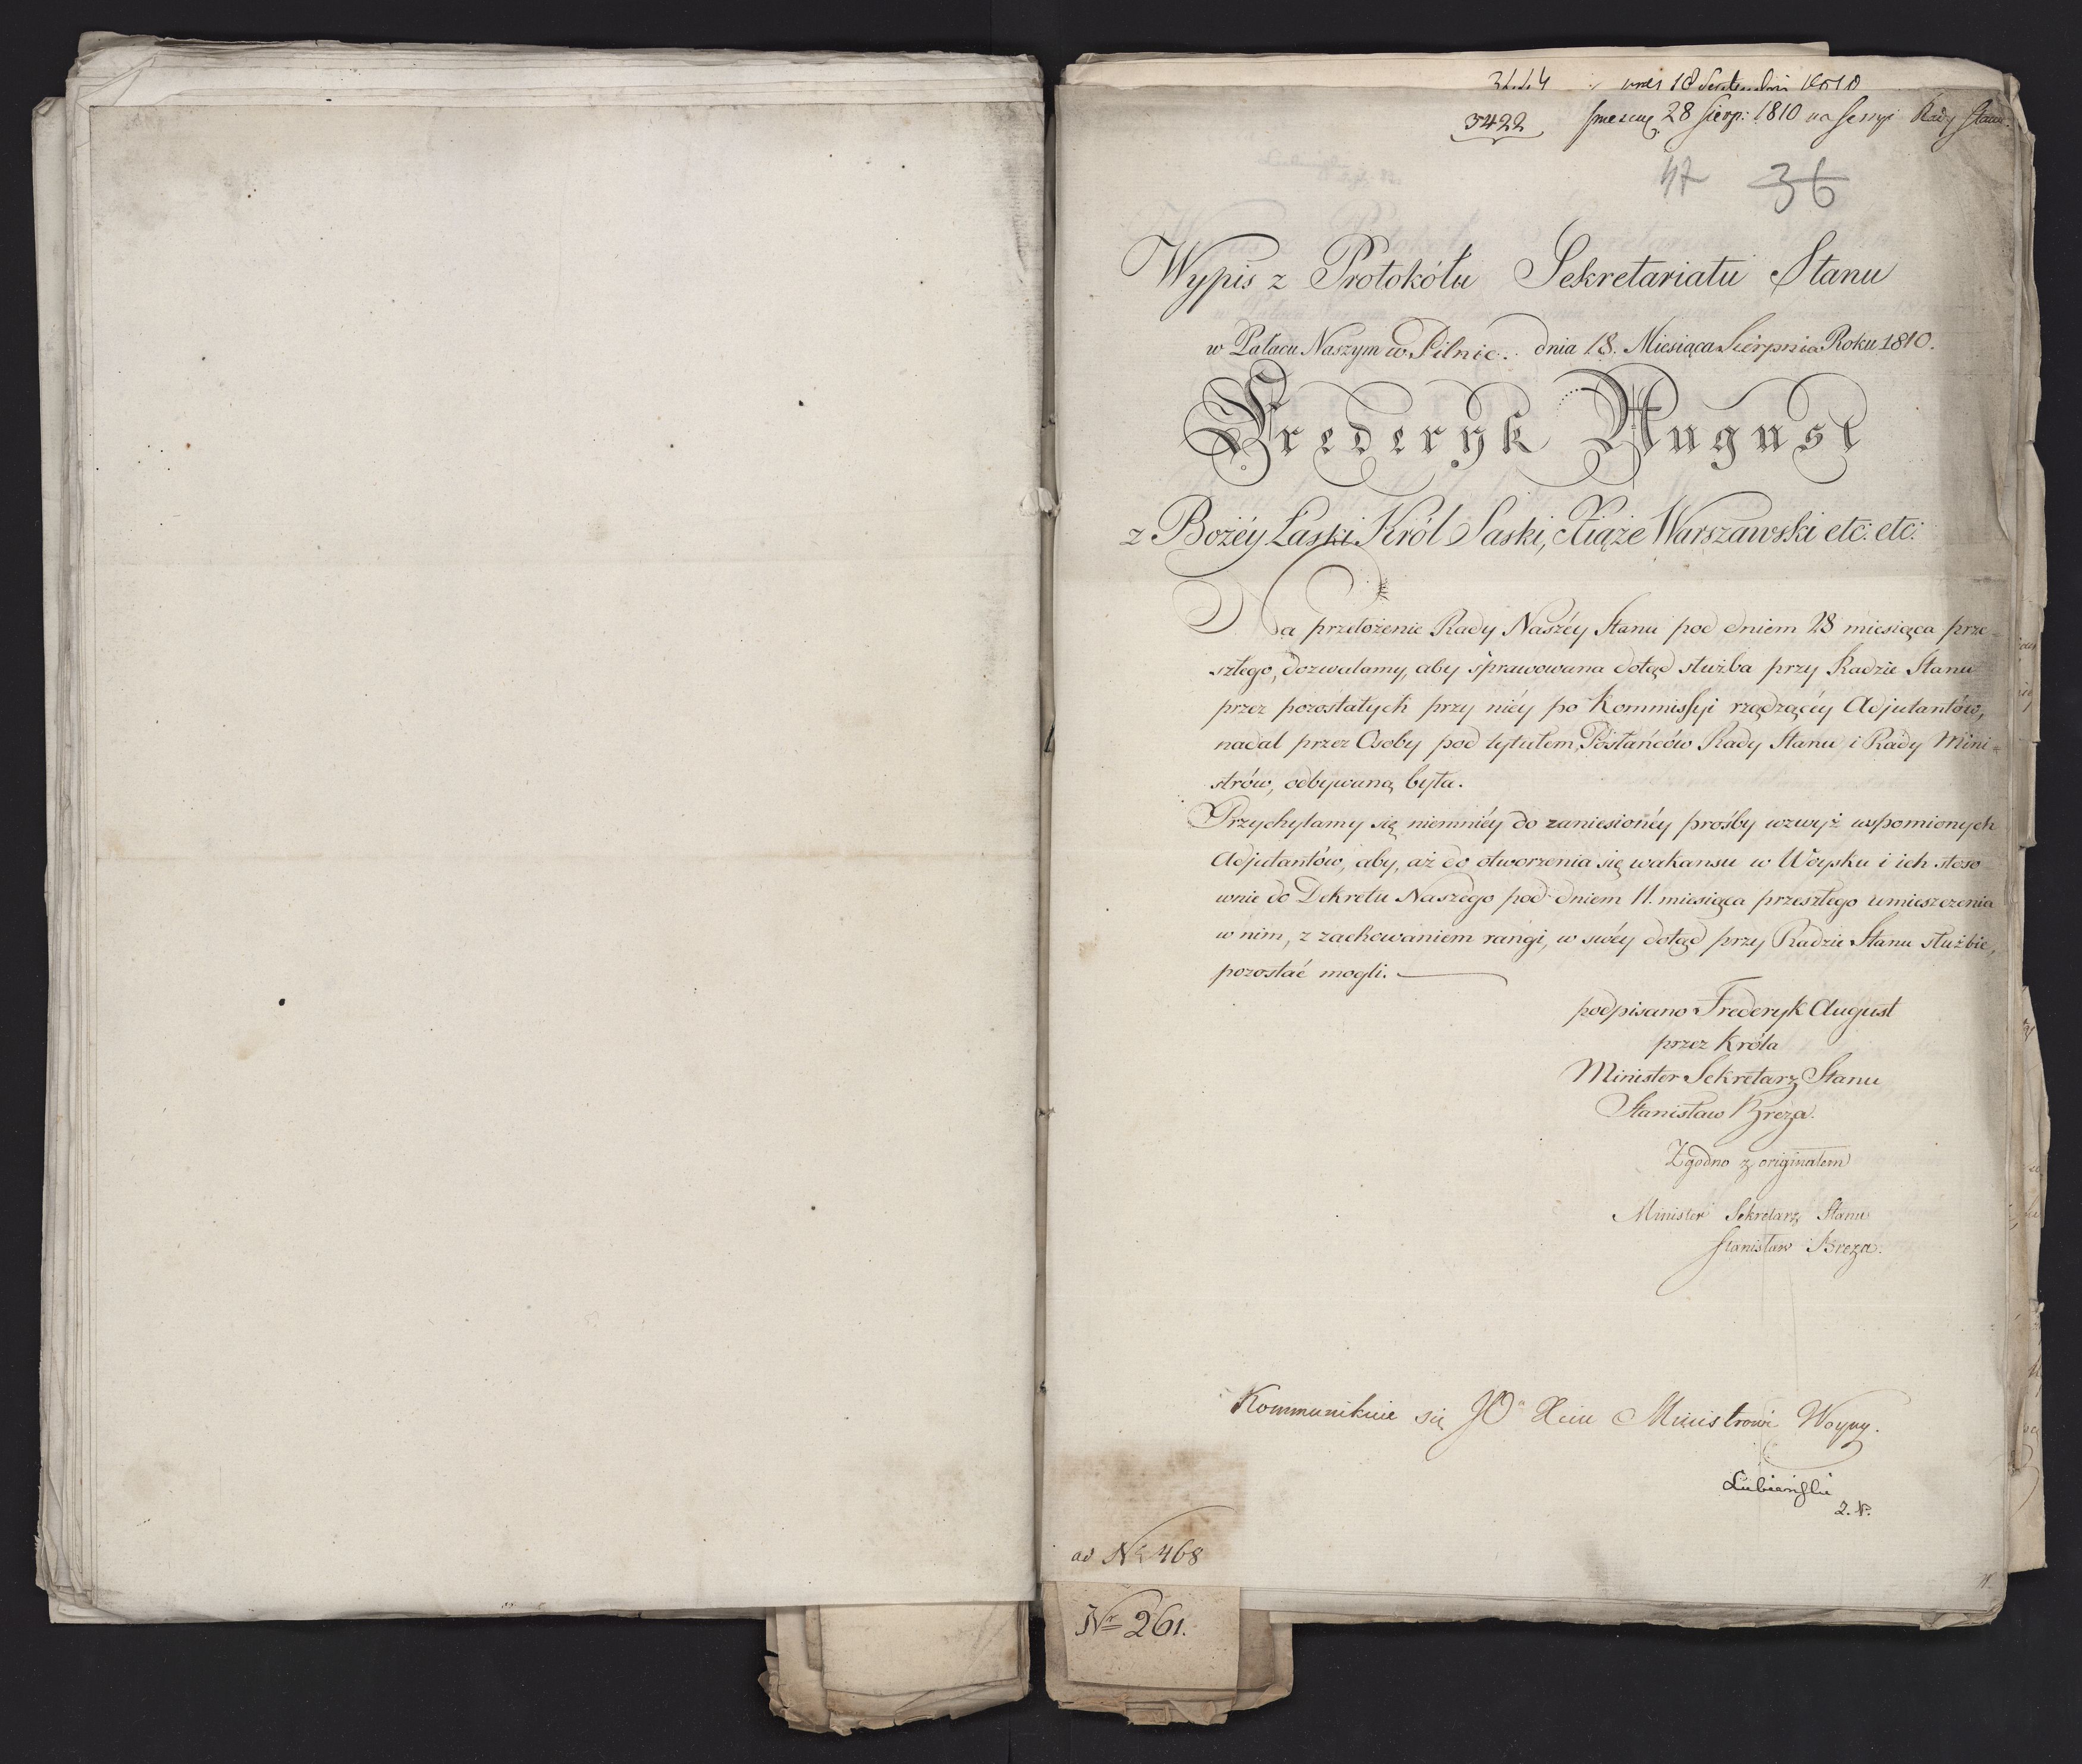 3444 18 Septembri 1810
3422 28 Sierp: 1810 na Sessyi Rady Stanu.
47 36
Wypis z Protokółu Sekretariatu Stanu
w Pałacu Naszym w Pilnic. dnia 18. Miesiąca Sierpnia Roku 1810.
Frederyk August
z Bożéy Łaski Król Saski, Xiąże Warszawski etc: etc:
Na przełożenie Rady Naszéy Stanu pod dniem 28 miesiąca prze=
szłego, dozwalamy, aby sprawowana dotąd służba przy Radzie Stanu
przez pozostałych przy niéy po Kommissyi rządzącéy Adjutantów,
nadal przez Osoby pod tytułem, Posłańców Rady Stanu i Rady Mini=
strów, odbywaną była.
Przychylamy się niemniéy do zaniesionéy prośby wzwyż wspomionych
Adjutantów, aby, aż do otworzenia się wakansu w Woysku i ich stoso
wnie do Dekretu Naszego pod dniem 11. miesiąca przeszłego umieszczenia
w nim, z zachowaniem rangi, w swéy dotąd przy Radzie Stanu służbie,
pozostać mogli.
podpisano Frederyk August
przez Króla
Minister Sekretarz Stanu
Stanisław Breza.
Zgodno z originałem
Minister Sekretarz Stanu
Stanisław Breza.
Kommunikuie się JO Xciu Ministrowi Woyny.
Lubieński
ad Nr 468
Nr 261.